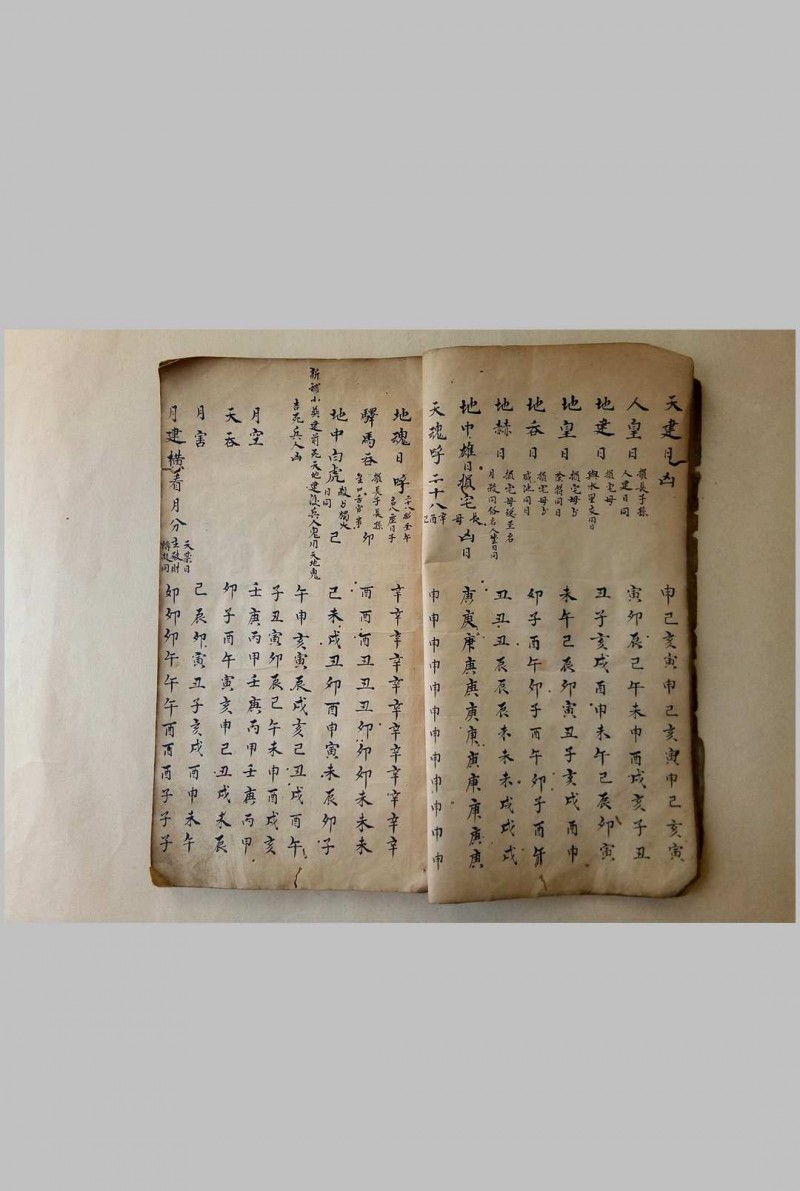 天建日凶 申巳亥寅申巳亥寅申巳亥寅
人皇日 損長子孫 人建日同 寅卯辰巳午未申酉戌亥子丑
地建日 損宅母 丑子亥戌酉申未午巳辰卯寅
地皇日 損宅母 未午巳辰卯寅丑子亥戌酉申
地吞日 損宅母 咸池同日 卯子酉午卯子酉午卯子酉午
地赫日 丑丑丑辰辰辰未未未戌戌戌
地中雄日損宅長母凶日 庚庚庚庚庚庚庚庚庚庚庚庚
天瑰呼二十八 申申申申申申申申申申申申
地瑰日呼 辛辛辛辛辛辛辛辛辛辛辛辛
驛馬吞 損長子長孫 卯 酉酉酉丑丑丑卯卯卯未未未
地中白虎日同 己 己未戌丑卯酉申寅未辰卯子
吉死兵人凶 午申亥寅辰戌亥巳丑戌酉午
子丑寅卯辰巳午未申酉戌亥
月空 壬庚丙甲壬庚丙甲壬庚丙甲
天吞 卯子酉午寅亥申巳丑戌未辰
月害 巳辰卯寅丑子亥戌酉申未午
月建橫看月分 卯卯卯午午午酉酉酉子子子